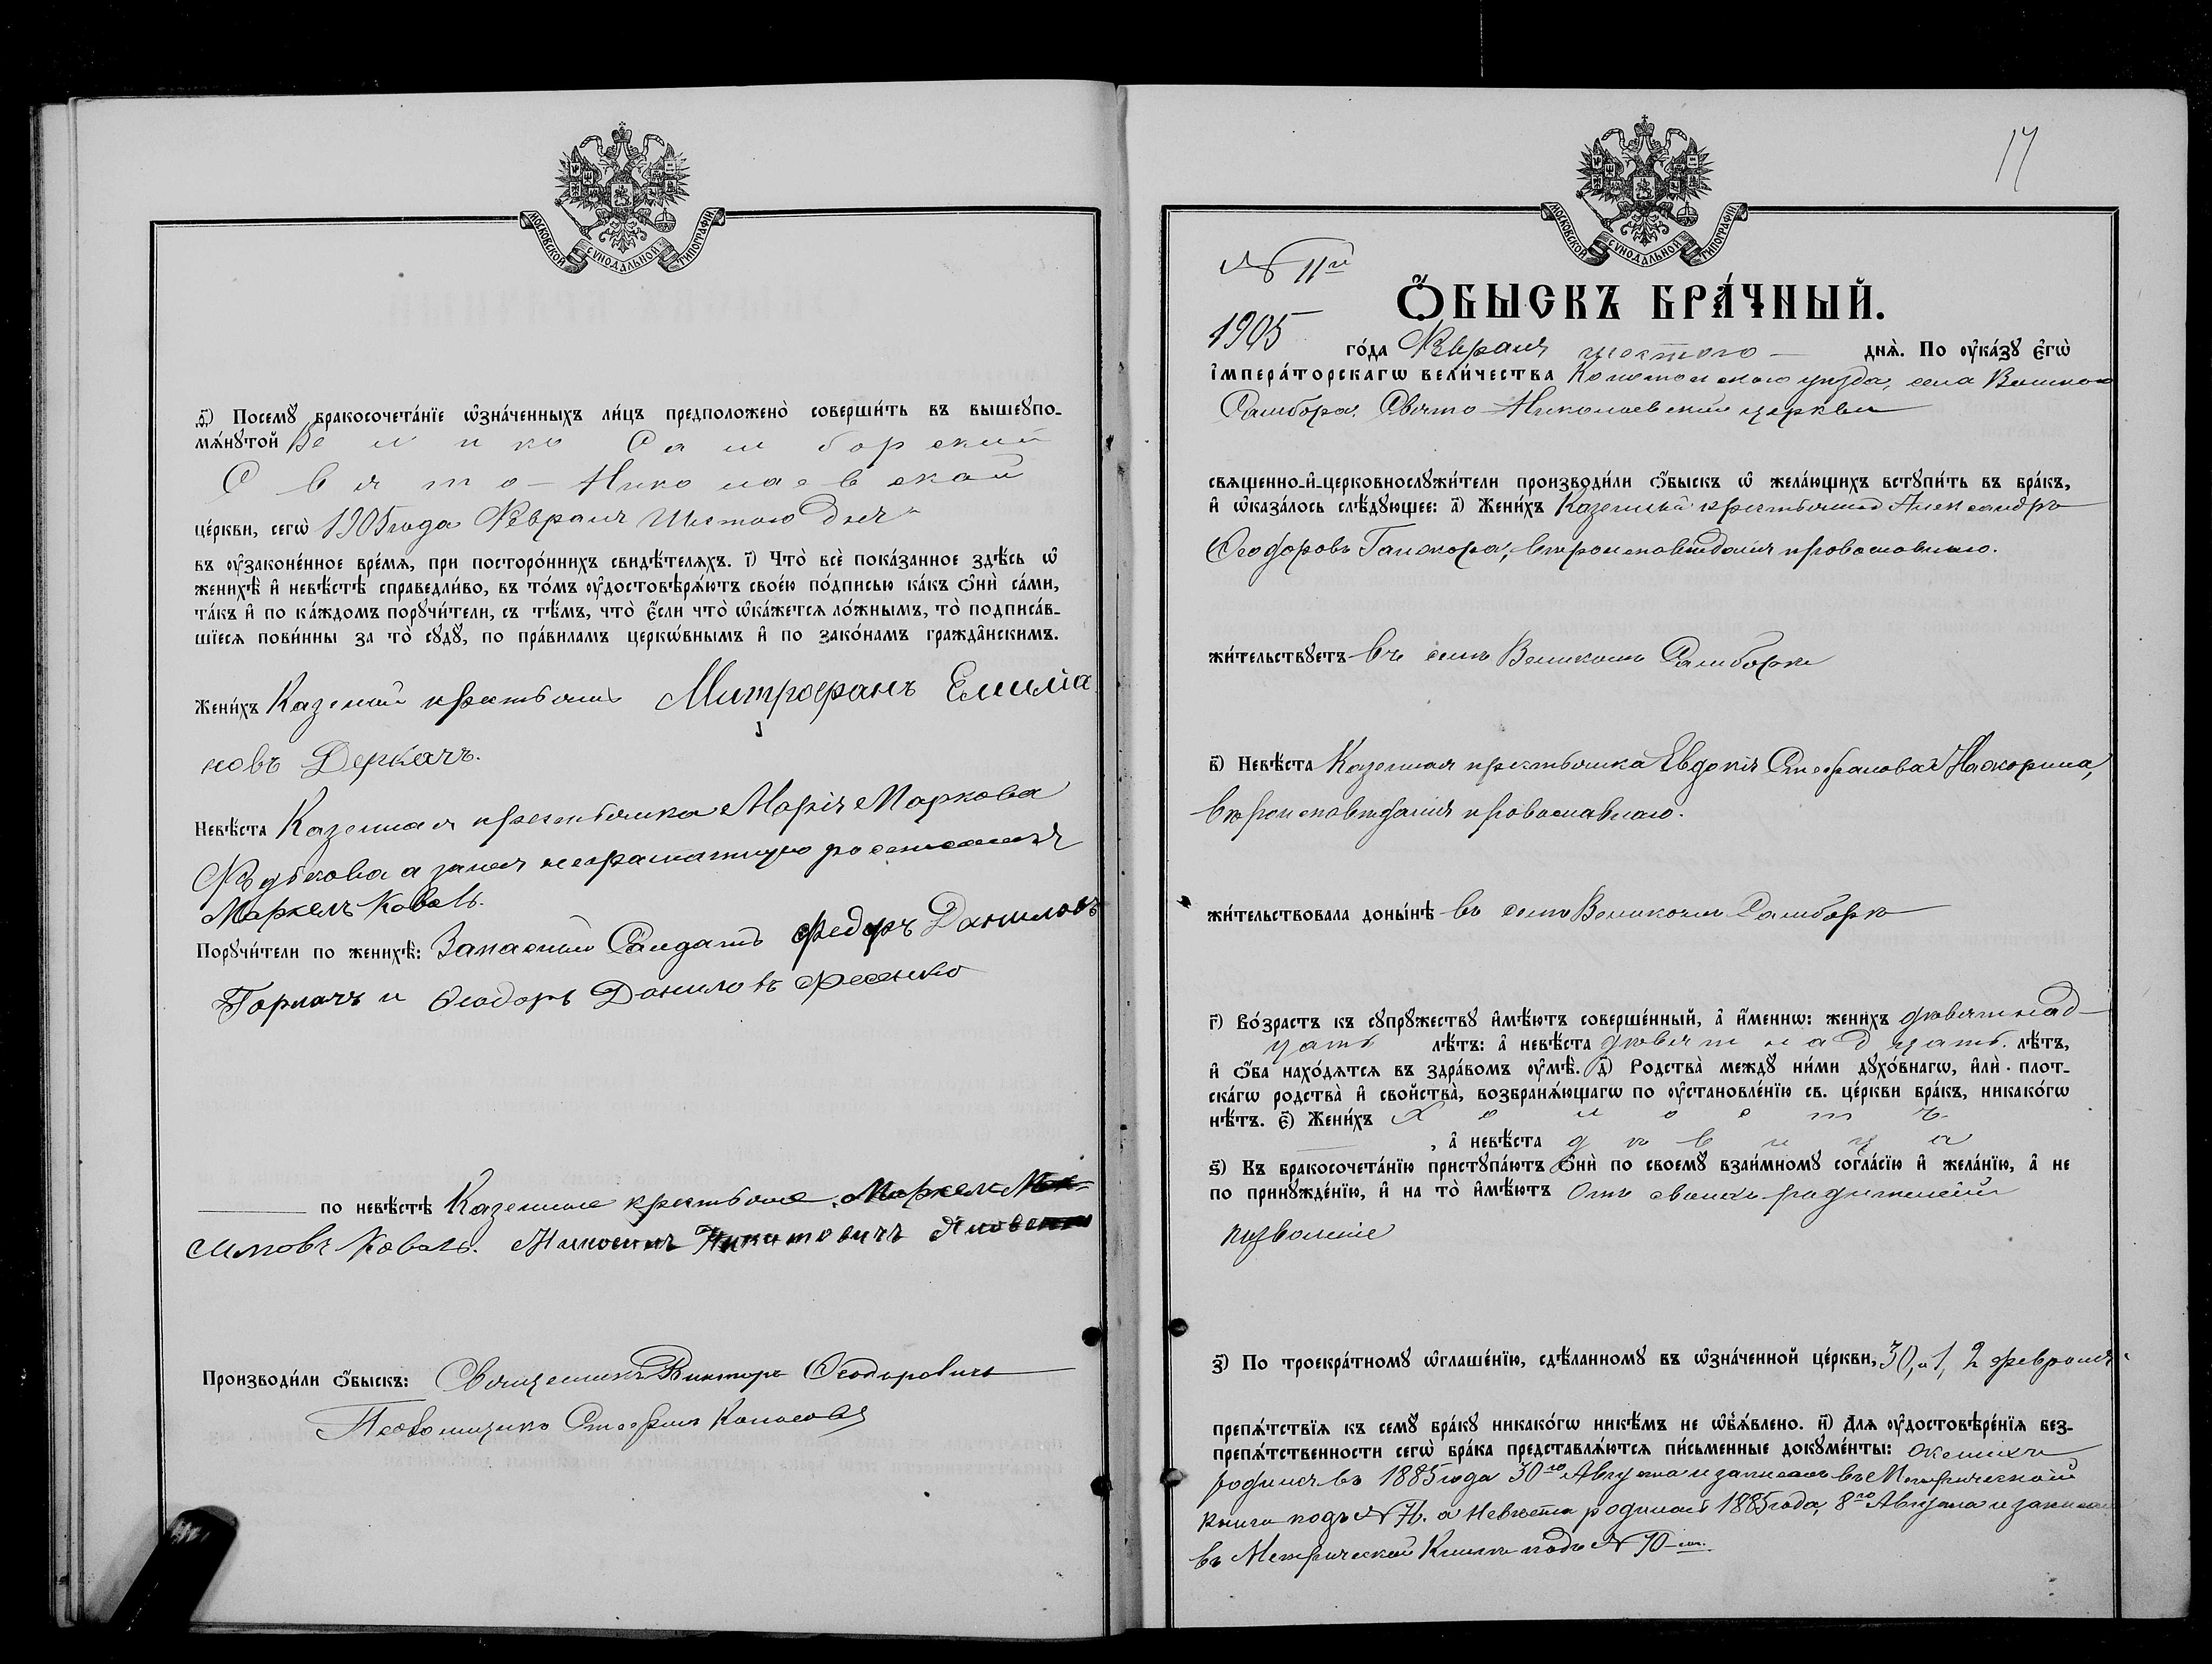 МОСКОВСКОЙ СѴНОДАЛЬНОЙ ТИПОГРАФІИ
ѳ҃) Посемꙋ̀ бракосочета́нїе ѡ҆зна́ченныхъ ли́цъ предположено̀ соверши́ть въ вышеꙋпо-
мѧ́нꙋтой Велико Самборской
Свято-Николаевской
це́ркви, сегѡ̀ 1905 года Февраля Шестого дня
въ ᲂу҆зако́ненное вре́мѧ, при посторо́ннихъ свидѣ́телѧхъ. і҃) Что̀ всѐ пока́занное здѣ́сь ѡ҆
женихѣ̀ и҆ невѣ́стѣ справедли́во, въ то́мъ ᲂу҆достовѣрѧ́ютъ свое́ю по́дписью ка́къ ѻ҆нѝ са́ми,
та́къ и҆ по ка́ждомъ порꙋчи́тели, съ тѣ́мъ, что̀ є҆́сли что̀ ѡ҆ка́жетсѧ ло́жнымъ, то̀ подписа́в-
шїесѧ пови́нны за то̀ сꙋдꙋ̀, по пра́виламъ церкѡ́внымъ и҆ по зако́намъ гражда̑нскимъ.
Жени́хъ Казеный крестьянинъ Митрофанъ Емилiа
новъ Деркачъ.
Невѣ́ста Казенная крестьянка Марія Маркова
а за нея неграмотную
Маркелъ Коваль.
Порꙋчи́тели по женихѣ̀: Запасный Салдатъ Федоръ Даниловъ
Горкачъ и Ѳеодоръ Даниловъ Фесенко
по невѣ́стѣ Казенные крестьяне Маркел Мак-
симовъ Коваль. Никитовичъ Яковенко
Производи́ли ѻ҆́быскъ: Священникъ Викторъ Ѳеодоровичъ
Псаломщикъ Стефанъ Колосовъ
17
МОСКОВСКОЙ СѴНОДАЛЬНОЙ ТИПОГРАФІИ
№ 11й
Ѻ҆́БЫСКЪ БРА́ЧНЫЙ.
1905 го́да Февраля шестого дня̀. По ᲂу҆ка́зꙋ є҆гѡ̀
і҆мпера́торскагѡ вели́чества Конотопского уѣзда, села Великого
Самбора, Свято-Николаевской церкви
свѧщенно-и҆-церковнослꙋжи́тели производи́ли ѻ҆́быскъ ѡ҆ жела́ющихъ встꙋпи́ть въ бра́къ,
и҆ ѡ҆каза́лось слѣ́дꙋющее: а҃) Жени́хъ Казенный крестьянинъ Александръ
Ѳеодоровъ вѣроисповѣданія православного.
жи́тельствꙋетъ въ селѣ Великомъ Самборѣ
в҃) Невѣ́ста Казенная крестьянка Евдокія Стефанова
вѣроисповѣданія православного.
жи́тельствовала доны́нѣ въ селѣ Великомъ Самборѣ
г҃) Во́зрастъ къ сꙋпрꙋ́жествꙋ и҆мѣ́ютъ соверше́нный, а҆ и҆́меннѡ: жени́хъ девятнад-
цать лѣ́тъ: а҆ невѣ́ста девятнадцать. лѣ́тъ,
и҆ ѻ҆́ба нахо́дѧтсѧ въ здра́вомъ ᲂу҆мѣ̀. д҃) Родства̀ междꙋ̀ ни́ми дꙋхо́внагѡ, и҆лѝ плот-
ска́гѡ родства̀ и҆ свойства̀, возбранѧ́ющагѡ по ᲂу҆становле́нїю св. це́ркви бра́къ, никако́гѡ
нѣ́тъ. є҃) Жени́хъ Холостъ
, а҆ невѣ́ста дѣвица
ѕ҃) Къ бракосочета́нїю пристꙋпа́ютъ ѻ҆нѝ по своемꙋ̀ взаи́мномꙋ согла́сїю и҆ жела́нїю, а҆ не
по принꙋжде́нїю, и҆ на то̀ и҆мѣ́ютъ Отъ своихъ родителей
позволеніе
з҃) По троекра́тномꙋ ѡ҆глаше́нїю, сдѣ́ланномꙋ въ ѡ҆зна́ченной це́ркви, 30, и 1, 2 февраля
препѧ́тствїѧ къ семꙋ̀ бра́кꙋ никако́гѡ никѣ́мъ не ѡ҆б̾ѧ́влено. и҃) Длѧ ᲂу҆достовѣре́нїѧ без-
препѧ́тственности сегѡ̀ бра́ка представлѧ́ютсѧ пи́сьменные докꙋме́нты: женихъ
родился въ 1885 года 30го Августа и записанъ въ Метрической
книги подъ № а Невѣста родилась 1885 года, 8го Августа и записана
въ Метрической Книги подъ № 70-м.